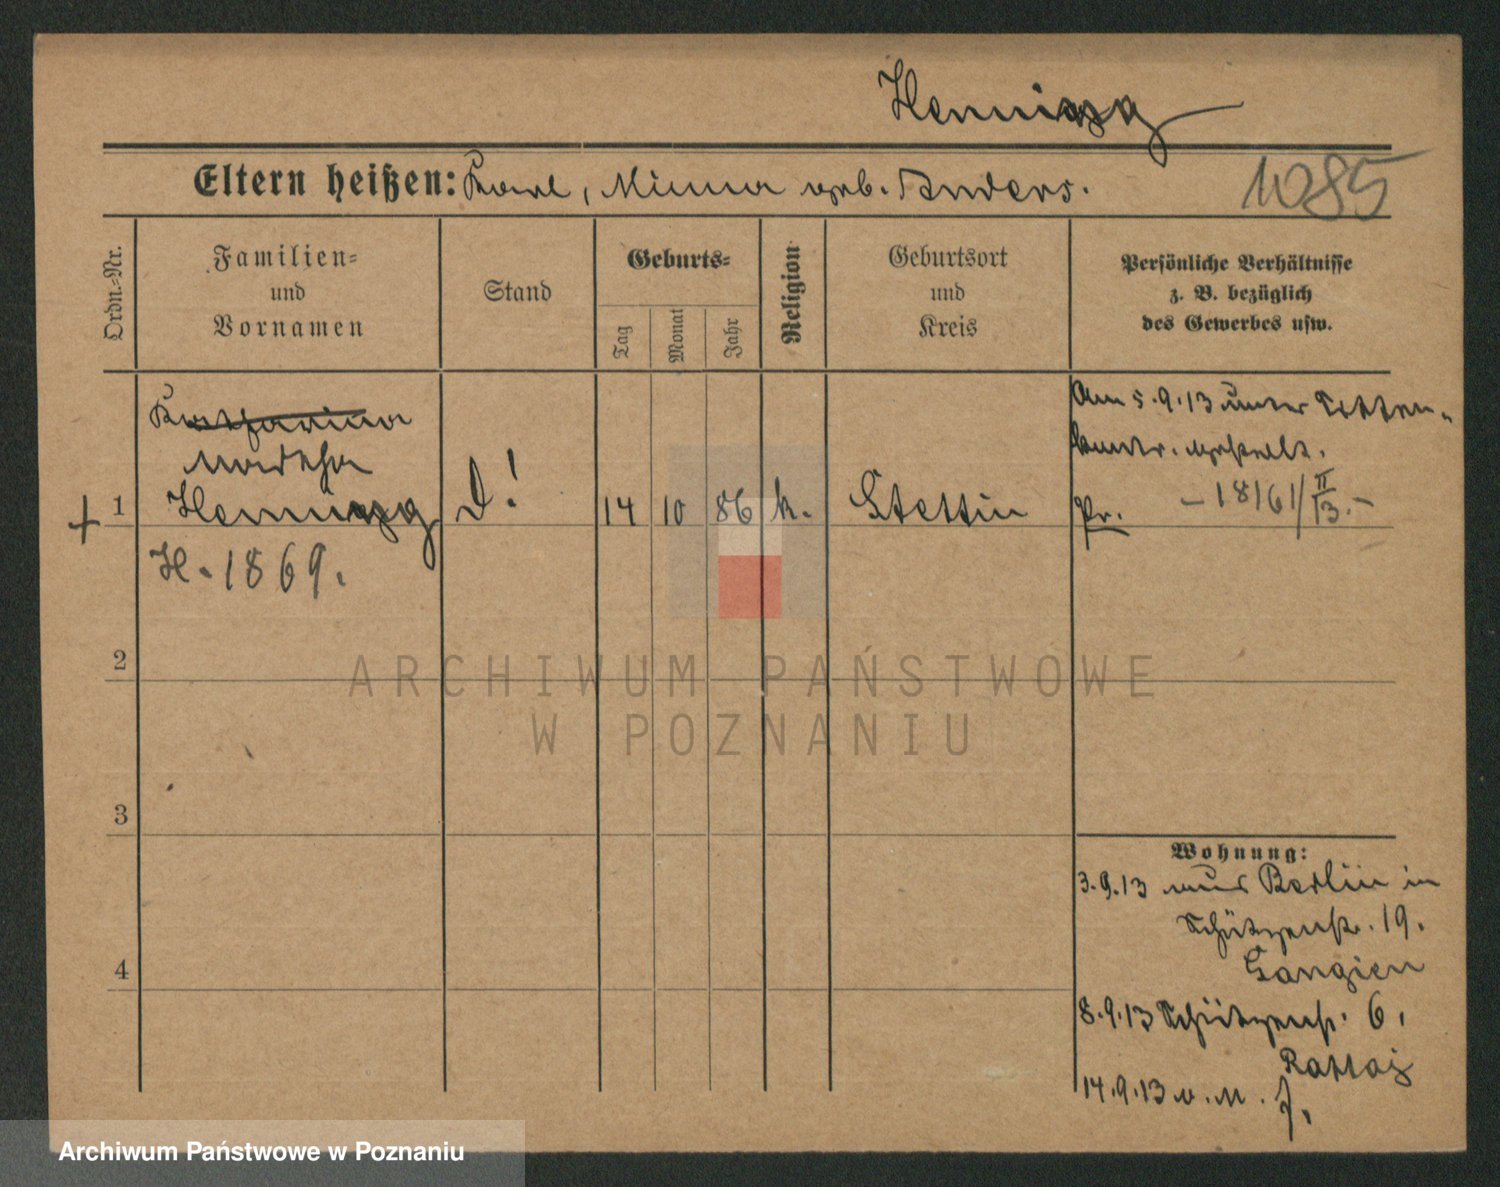 Henning
Eltern heißen: Karl, Minna geb. Anders.
1085
Ordn.-Nr.
Familien-
und
Vornamen
Stand
Geburts-
Tag
Monat
Jahr
Religion
Geburtsort
und
Kreis
Persönliche Verhältnisse
z. B. bezüglich
des Gewerbes usw.
Katharina
Martha
1 Henning D! 14 10 86 k. Stettin
H. 1869.
Am 5.9.13 unter Sitten-
kontr. gestellt.
Pr. - 18161/II 13. -
2
3
4
ARCHIWUM PAŃSTWOWE
W POZNANIU
Wohnung:
3.9.13 aus Berlin in
Schützenstr. 19.
8.9.13 Schützenstr. 6.
Rattaj
14.9.13
Archiwum Państwowe w Poznaniu